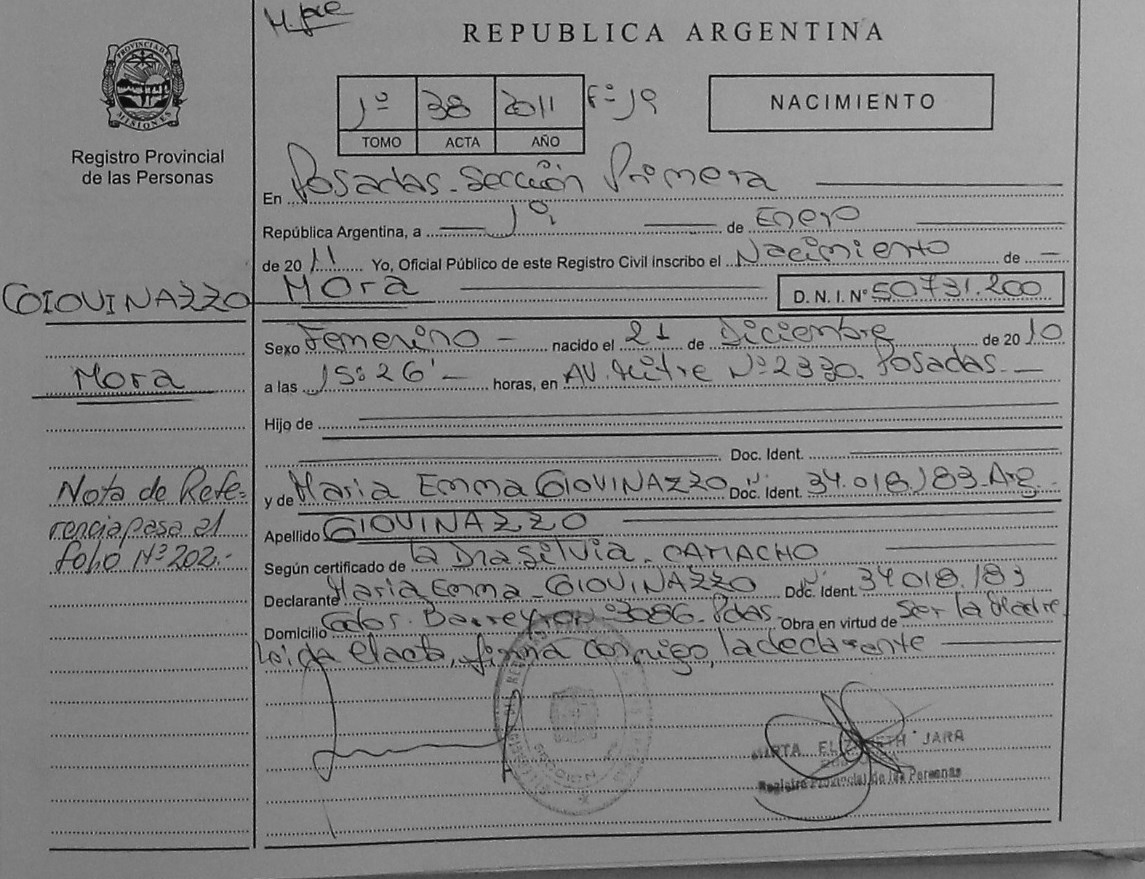 M. pre
REPUBLICA ARGENTINA
PROVINCIA DE MISIONES
Registro Provincial
de las Personas
1º 38 2011 Fº 19
TOMO ACTA AÑO
NACIMIENTO
En Posadas - Sección Primera
República Argentina, a 1º de Enero
de 2011 Yo, Oficial Público de este Registro Civil inscribo el Nacimiento de —
Mora D.N.I. Nº 50731.200
GIOVINAZZO
Mora
Sexo Femenino - nacido el 21 de Diciembre de 2010
a las 15:26' - horas, en AV. Mitre Nº 2330. Posadas. —
Hijo de
Doc. Ident.
y de Maria Emma GIOVINAZZO Doc. Ident. Nº 34.018.183. Arg.
Apellido GIOVINAZZO
Según certificado de la Dra Silvia - CAMACHO
Declarante Maria Emma - GIOVINAZZO Doc. Ident. Nº 34018.183
Domicilio Barreyro Nº 3086 - Pdas. Obra en virtud de Ser la Madre
Leida el acta, firma conmigo, la declarante
Nota de Refe-
rencia pasa al
folio Nº 202.-
JARA
Registro Provincial de las Personas